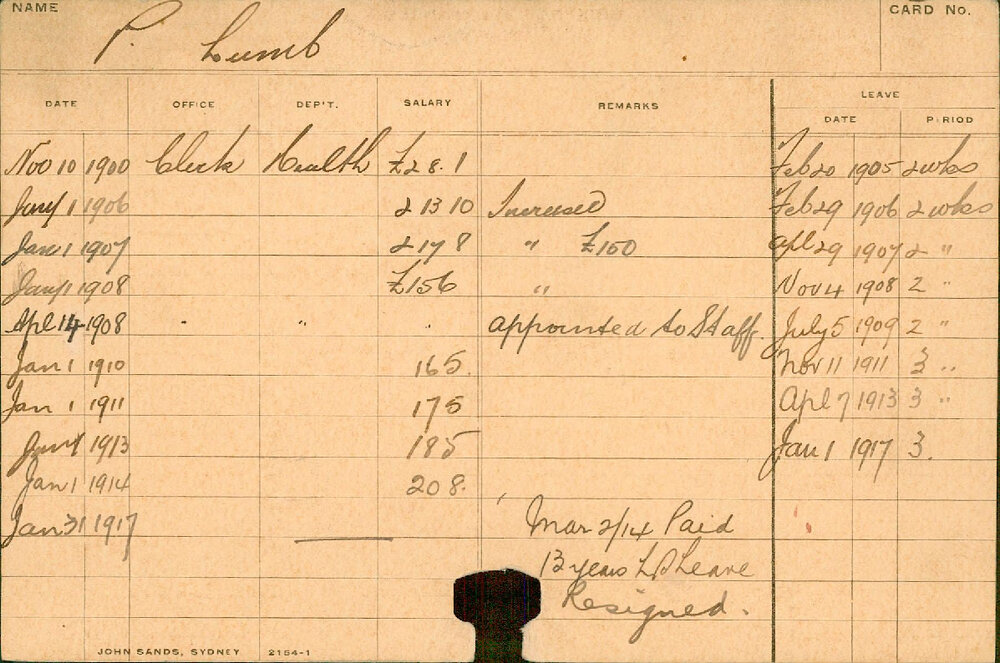 NAME P. Lumb CARD No.
DATE OFFICE DEP'T. SALARY REMARKS LEAVE
DATE PERIOD
Nov 10 1900 Clerk Health £2 8. 1 Feb 20 1905 2 wks
Jany 1 1906 2 13 10 Increased Feb 29 1906 2 wks
Jan 1 1907 2 17 8 " £150 Apl 29 1907 2 "
Jany 1 1908 £156 " Nov 4 1908 2 "
Apl 14 1908 " " " appointed to Staff. July 5 1909 2 "
Jan 1 1910 165. Nov 11 1911 3 "
Jan 1 1911 175 Apl 7 1913 3 "
Jany 1 1913 185 Jan 1 1917 3.
Jan 1 1914 208.
Jan 31 1917 Mar 2/14 Paid
13 years L S Leave
Resigned.
JOHN SANDS, SYDNEY 2154-1